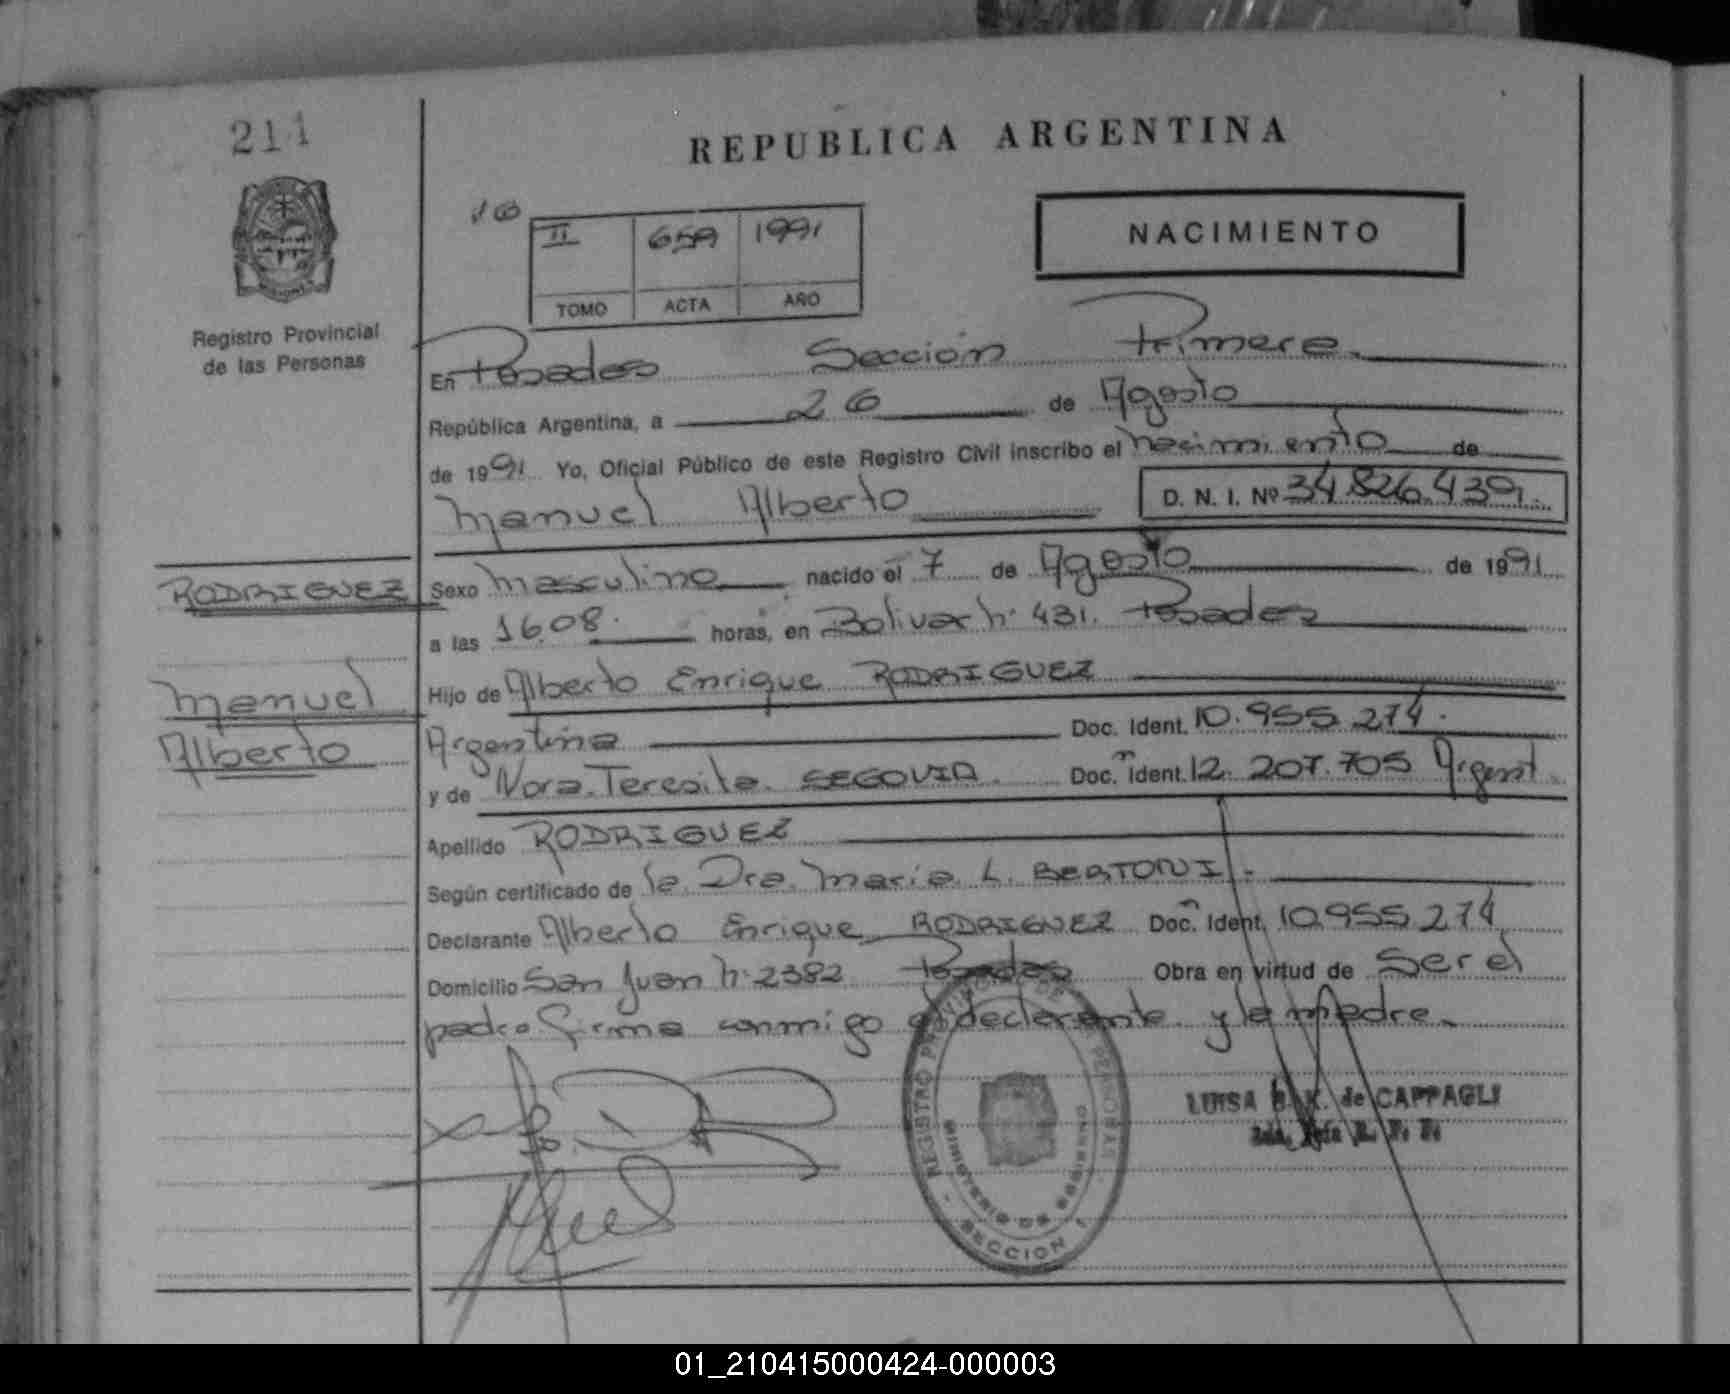 211
REPUBLICA ARGENTINA
NACIMIENTO
II 659 1991
TOMO ACTA AÑO
Registro Provincial
de las Personas
En Posadas Sección Primera
República Argentina, a 26 de Agosto
de 1991 Yo, Oficial Público de este Registro Civil inscribo el nacimiento de
Manuel Alberto D. N. I. Nº 34.826.439
RODRIGUEZ
Manuel
Alberto
Sexo Masculino nacido el 7 de Agosto de 1991
a las 16.08. horas, en Bolivar Nº 431. Posadas
Hijo de Alberto Enrique RODRIGUEZ
Argentina Doc. Ident. 10.955.274.
y de Nora Teresita SEGOVIA Doc. Ident. 12.207.705 Argent.
Apellido RODRIGUEZ
Según certificado de la Dra. Maria L. BERTONI.
Declarante Alberto Enrique RODRIGUEZ Doc. Ident. 10.955.274
Domicilio San Juan Nº 2382 Posadas Obra en virtud de Ser el
padre firma conmigo el declarante y la madre.
REGISTRO PROVINCIAL DE LAS PERSONAS
MINISTERIO DE GOBIERNO
SECCION 1
LUISA B. K. de CAPPAGLI
01_210415000424-000003